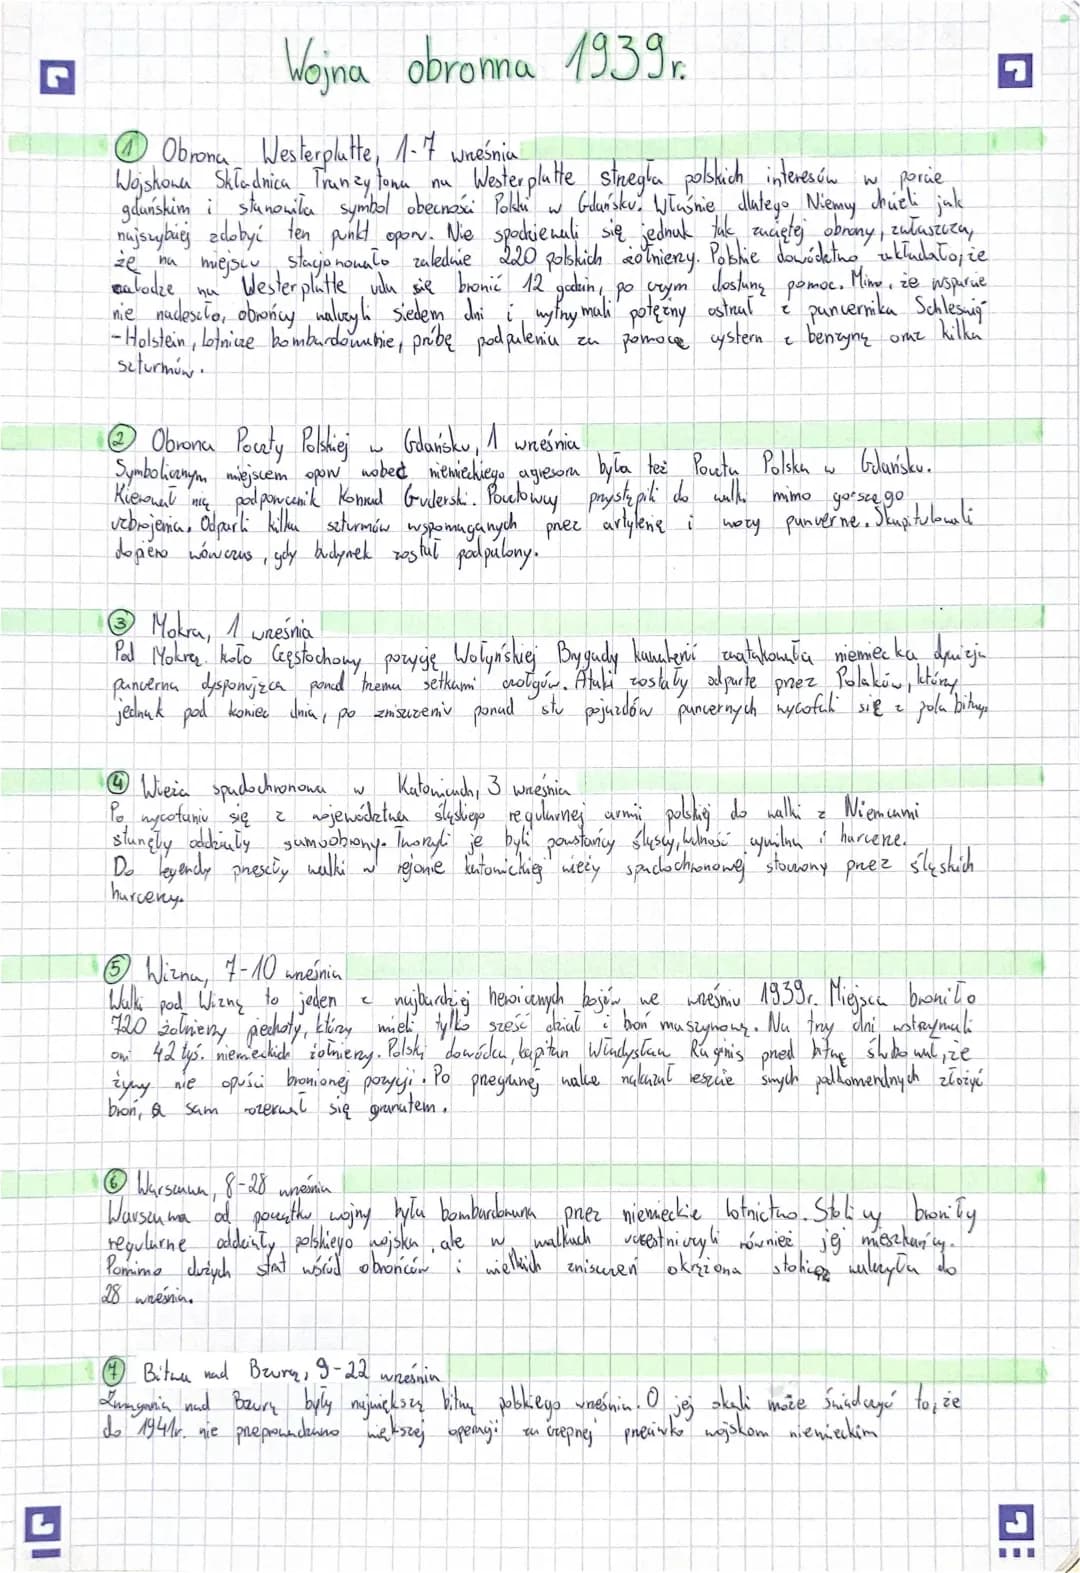 Wojna obronna 1939r.
① Obrona Westerplatte, 1-7 września
Wojskowa Składnica Tranzytowa na Westerplatte strzegła polskich interesów w porcie
gdańskim i stanowiła symbol obecności Polski w Gdańsku. Właśnie dlatego Niemcy chcieli jak
najszybciej zdobyć ten punkt oporu. Nie spodziewali się jednak tak zaciętej obrony, zwłaszcza,
że na miejscu stacjonowało zaledwie 220 polskich żołnierzy. Polskie dowództwo zakładało, że
załodze na Westerplatte uda się bronić 12 godzin, po czym dostaną pomoc. Mimo, że wsparcie
nie nadeszło, obrońcy walczyli siedem dni i wytrzymali potężny ostrzał z pancernika Schleswig
-Holstein, lotnicze bombardowanie, próbę podpalenia za pomocą cystern z benzyną oraz kilka
szturmów.
② Obrona Poczty Polskiej w Gdańsku, 1 września
Symbolicznym miejscem oporu wobec niemieckiego agresora była też Poczta Polska w Gdańsku.
Kierował nią podporucznik Konrad Guderski. Pocztowcy przystąpili do walki mimo gorszego
uzbrojenia. Odparli kilku szturmów wspomaganych przez artylerię i wozy pancerne. Skapitulowali
dopiero wówczas, gdy budynek został podpalony.
③ Mokra, 1 września
Pod Mokrą koło Częstochowy pozycję Wołyńskiej Brygady kawalerii zaatakowała niemiecka dywizja
pancerna dysponująca ponad trzema setkami czołgów. Ataki zostały odparte przez Polaków, którzy
jednak pod koniec dnia, po zniszczeniu ponad stu pojazdów pancernych wycofali się z pola bitwy.
④ Wieża spadochronowa w Katowicach, 3 września
Po wycofaniu się z województwa śląskiego regularnej armii polskiej do walki z Niemcami
stanęły oddziały samoobrony. Tworzyli je byli powstańcy śląscy, ludność cywilna i harcerze.
Do legendy przeszły walki w rejonie katowickiej wieży spadochronowej stoczony przez śląskich
harcerzy.
⑤ Wizna, 7-10 września
Walki pod Wizną to jeden z najbardziej heroicznych bojów we wrześniu 1939r. Miejsca broniło
720 żołnierzy piechoty, którzy mieli tylko sześć dział i broń maszynową. Na trzy dni wstrzymali
oni 42 tyś. niemieckich żołnierzy. Polski dowódca, kapitan Władysław Raginis przed bitwą ślubował, że
żywy nie opuści bronionej pozycji. Po przegranej walce nakazał reszcie swych podkomendnych złożyć
broń, a sam rozerwał się granatem.
⑥ Warszawa, 8-28 września
Warszawa od początku wojny była bombardowana przez niemieckie lotnictwo. Stolicy broniły
regularne oddziały polskiego wojska, ale w walkach uczestniczyli również jej mieszkańcy.
Pomimo dużych strat wśród obrońców i wielkich zniszczeń okrążona stolica walczyła do
28 września.
⑦ Bitwa nad Bzurą, 9-22 września
Zmagania nad Bzurą były największą bitwą polskiego września. O jej skali może świadczyć to, że
do 1941r. nie przeprowadzono większej operacji zaczepnej przeciwko wojskom niemieckim